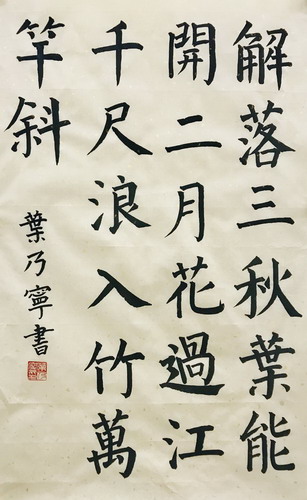 解落三秋葉能
開二月花過江
千尺浪入竹萬
竿斜
葉乃寧書